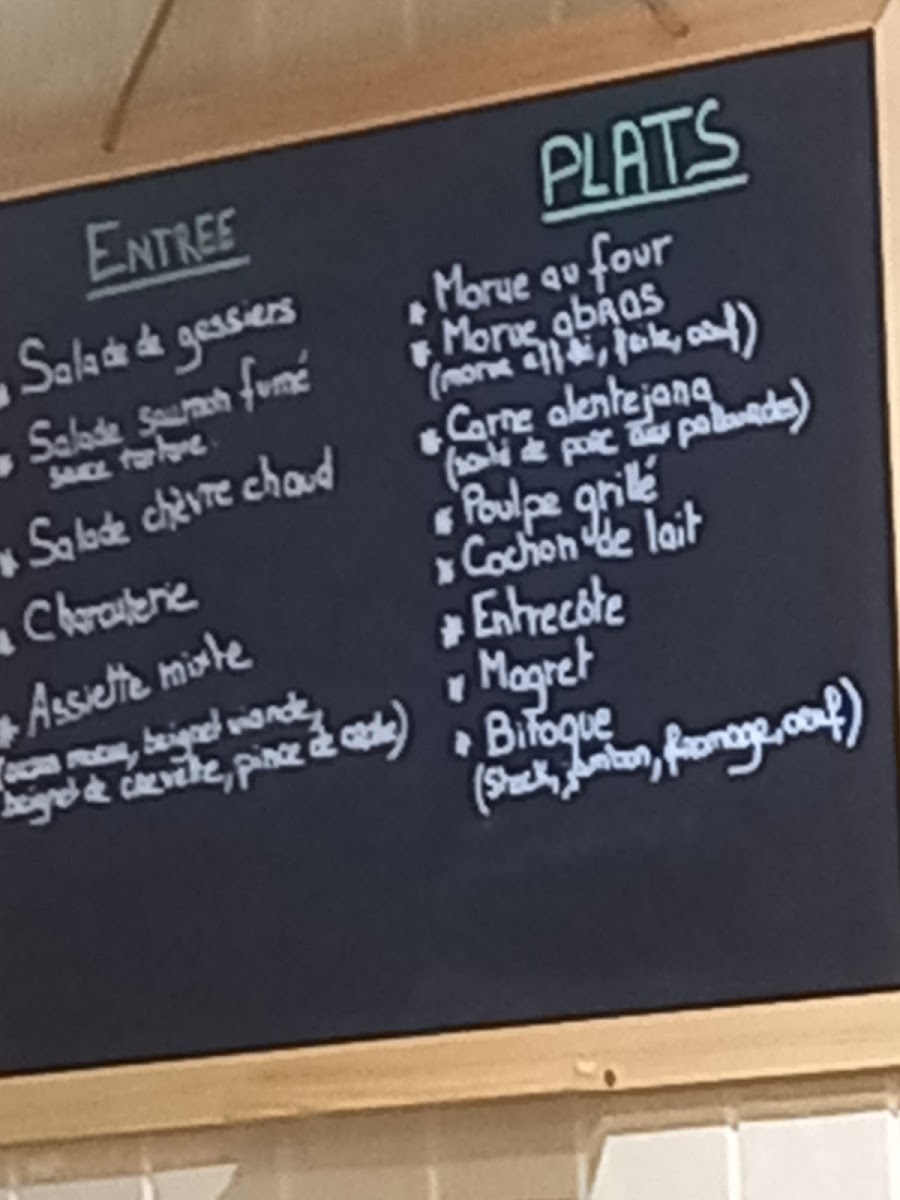 ENTREE
Salade de gessiers
Salade saumon fumé
sauce tartare
Salade chèvre chaud
Charcuterie
Assiette mixte
beignet viande,
beignet de crevette, pince de crabe)
PLATS
Morue au four
Morue abRAS
(morue effilé, frite, oeuf)
Carne alentejana
(sauté de porc aux palourdes)
Poulpe grillé
Cochon de lait
Entrecôte
Magret
Bitoque
(Steack, jambon, fromage, oeuf)